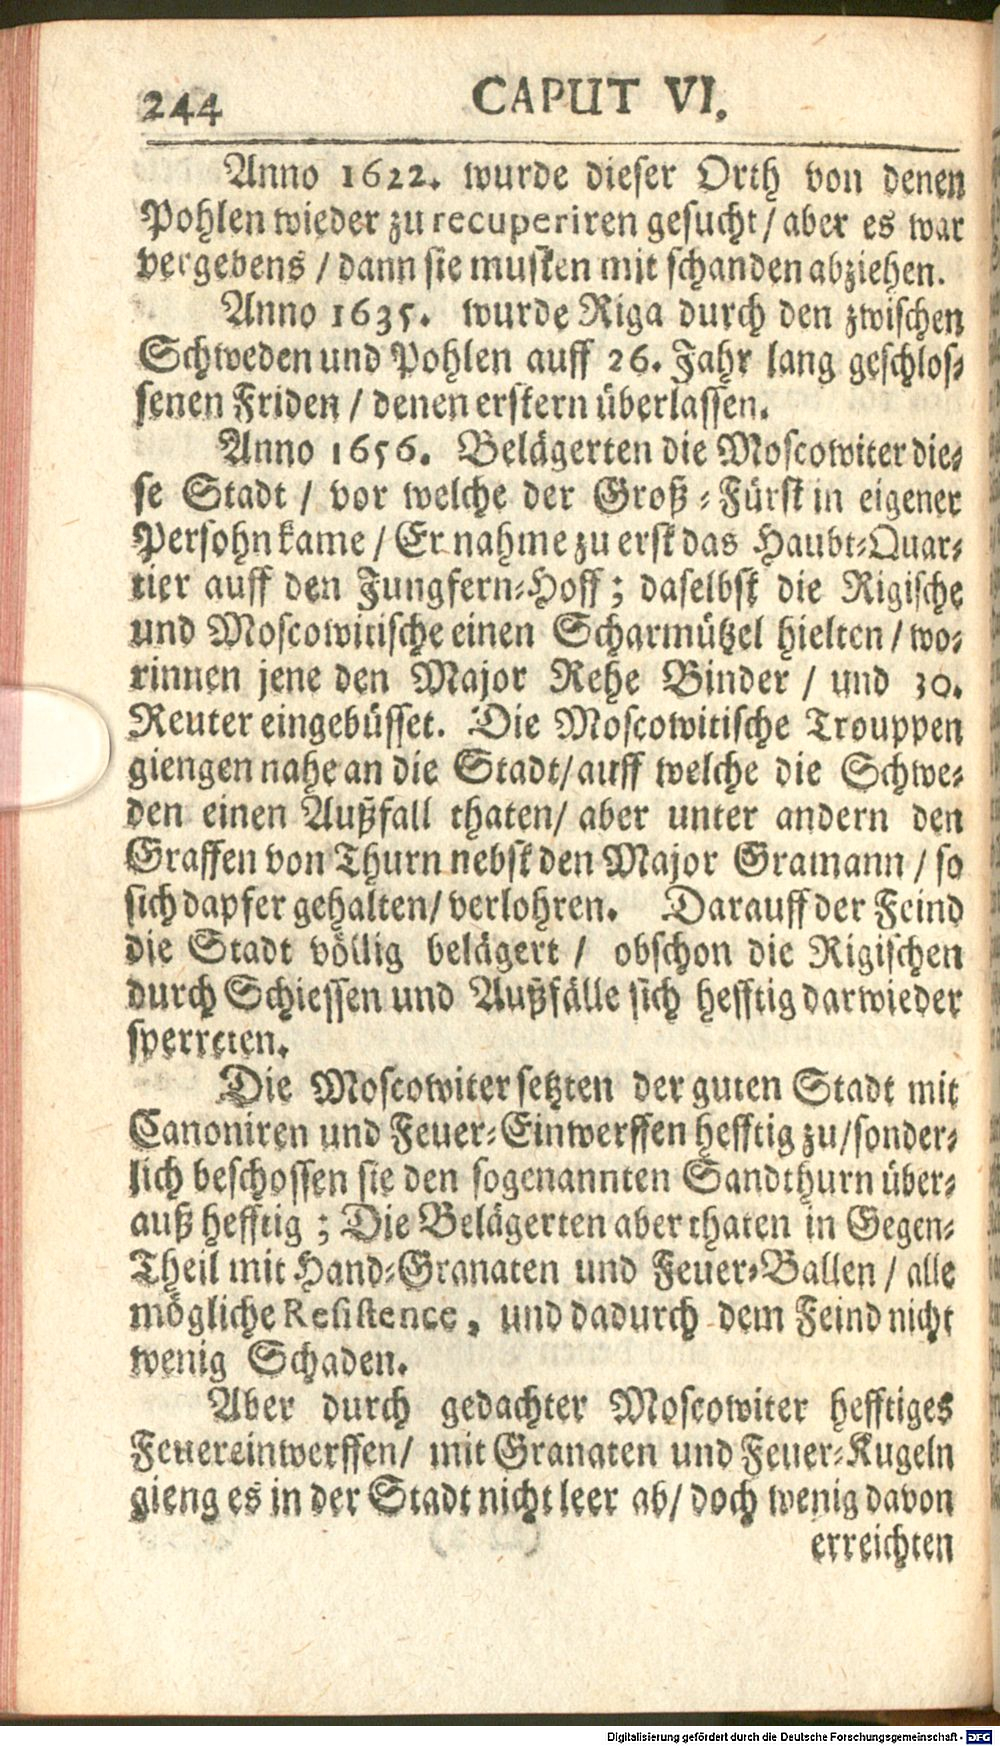 244 CAPUT VI.
Anno 1622. wurde dieser Orth von denen
Pohlen wieder zu recuperiren gesucht / aber es war
vergebens / dann sie musten mit schanden abziehen.
Anno 1635. wurde Riga durch den zwischen
Schweden und Pohlen auff 26. Jahr lang geschlos-
senen Friden / denen erstern überlassen.
Anno 1656. Belägerten die Moscowiter die-
se Stadt / vor welche der Groß-Fürst in eigener
Persohn kame / Er nahme zu erst das Haubt-Quar-
tier auff den Jungfern-Hoff; daselbst die Rigische
und Moscowitische einen Scharmützel hielten / wo-
rinnen jene den Major Rehe Binder / und 30.
Reuter eingebüsset. Die Moscowitische Trouppen
giengen nahe an die Stadt / auff welche die Schwe-
den einen Außfall thaten / aber unter andern den
Graffen von Thurn nebst den Major Gramann / so
sich dapfer gehalten / verlohren. Darauff der Feind
die Stadt völlig belägert / obschon die Rigischen
durch Schiessen und Außfälle sich hefftig darwieder
sperreten.
Die Moscowiter setzten der guten Stadt mit
Canoniren und Feuer-Einwerffen hefftig zu / sonder-
lich beschossen sie den sogenannten Sandthurn über-
auß hefftig; Die Belägerten aber thaten in Gegen-
Theil mit Hand-Granaten und Feuer-Ballen / alle
mögliche Resistence, und dadurch dem Feind nicht
wenig Schaden.
Aber durch gedachter Moscowiter hefftiges
Feuereinwerffen / mit Granaten und Feuer-Kugeln
gieng es in der Stadt nicht leer ab / doch wenig davon
erreichten
Digitalisierung gefördert durch die Deutsche Forschungsgemeinschaft - DFG